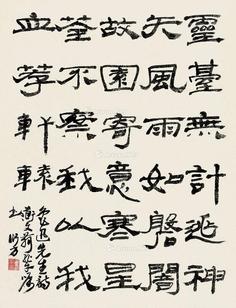 靈臺無計逃神
矢風雨如磐闇
故園寄意寒星
荃不察我以我
血荐軒轅
魯迅先生詩